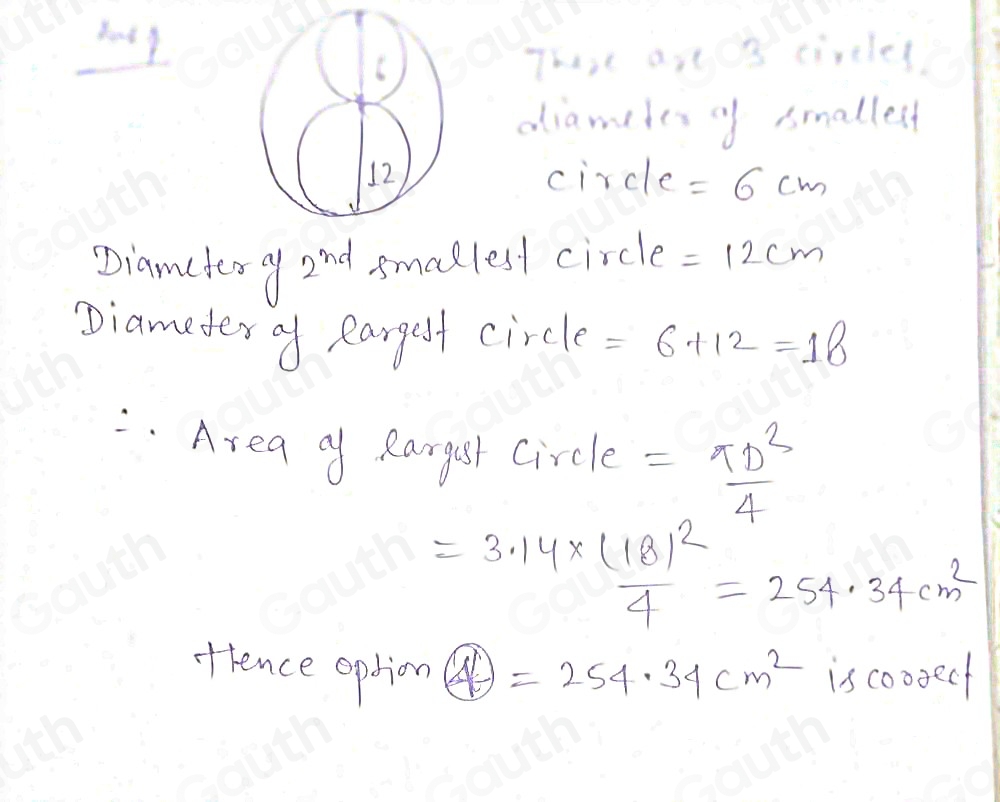 Ans
6
12
There are 3 circles.
diameter of smallest
circle = 6 cm
Diameter of 2nd smallest circle = 12cm
Diameter of largest circle = 6+12 = 18
∴ Area of largest circle = πD²/4
= 3.14 × (18)²/4 = 254.34 cm²
Hence option = 254.34 cm² is correct
Gauth